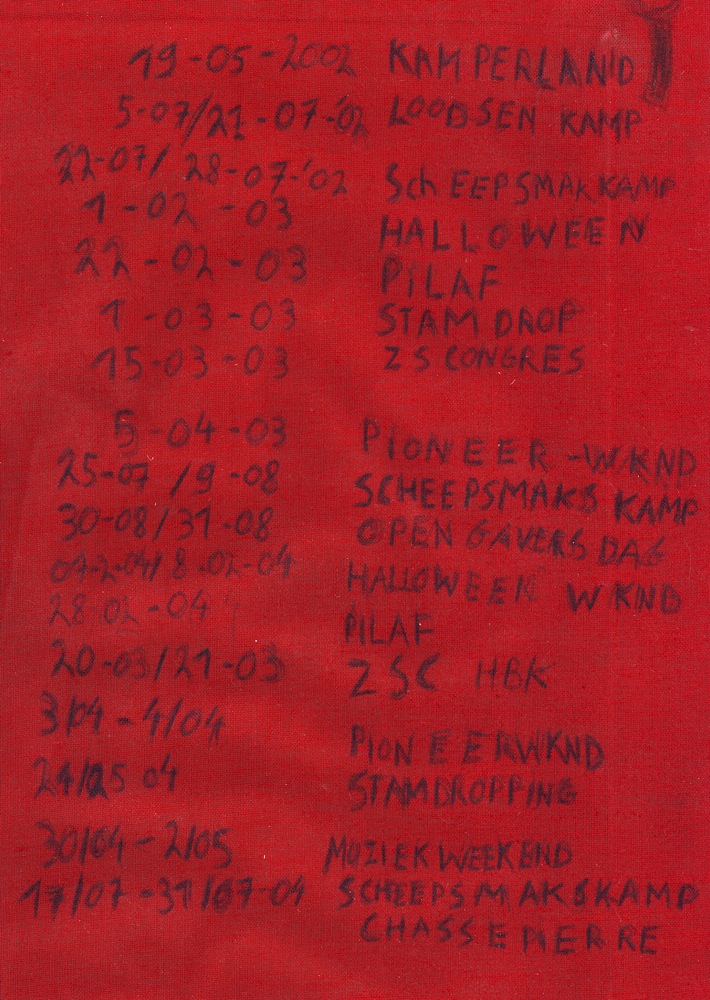 19-05-2002 KAMPERLAND
5-07/21-07-'02 LOODSEN KAMP
22-07/ 28-07-'02 SchEEPSMAKKAMP
1-02-03 HALLOWEEN
22-02-03 PILAF
1-03-03 STAM DROP
15-03-03 ZS CONGRES
5-04-03 PIONEER-WKND
25-07/9-08 SCHEEPSMAKS KAMP
30-08/31-08 OPEN GAVERS DAG
8-02-04 HALLOWEEN WKND
28-02-04 PILAF
20-03/21-03 ZSC HBK
3/04-4/04 PIONEERWKND
24/25 04 STAMDROPPING
30/04-2/05 MUZIEKWEEKEND
17/07-31/07-04 SCHEEPSMAKSKAMP
CHASSEPIERRE